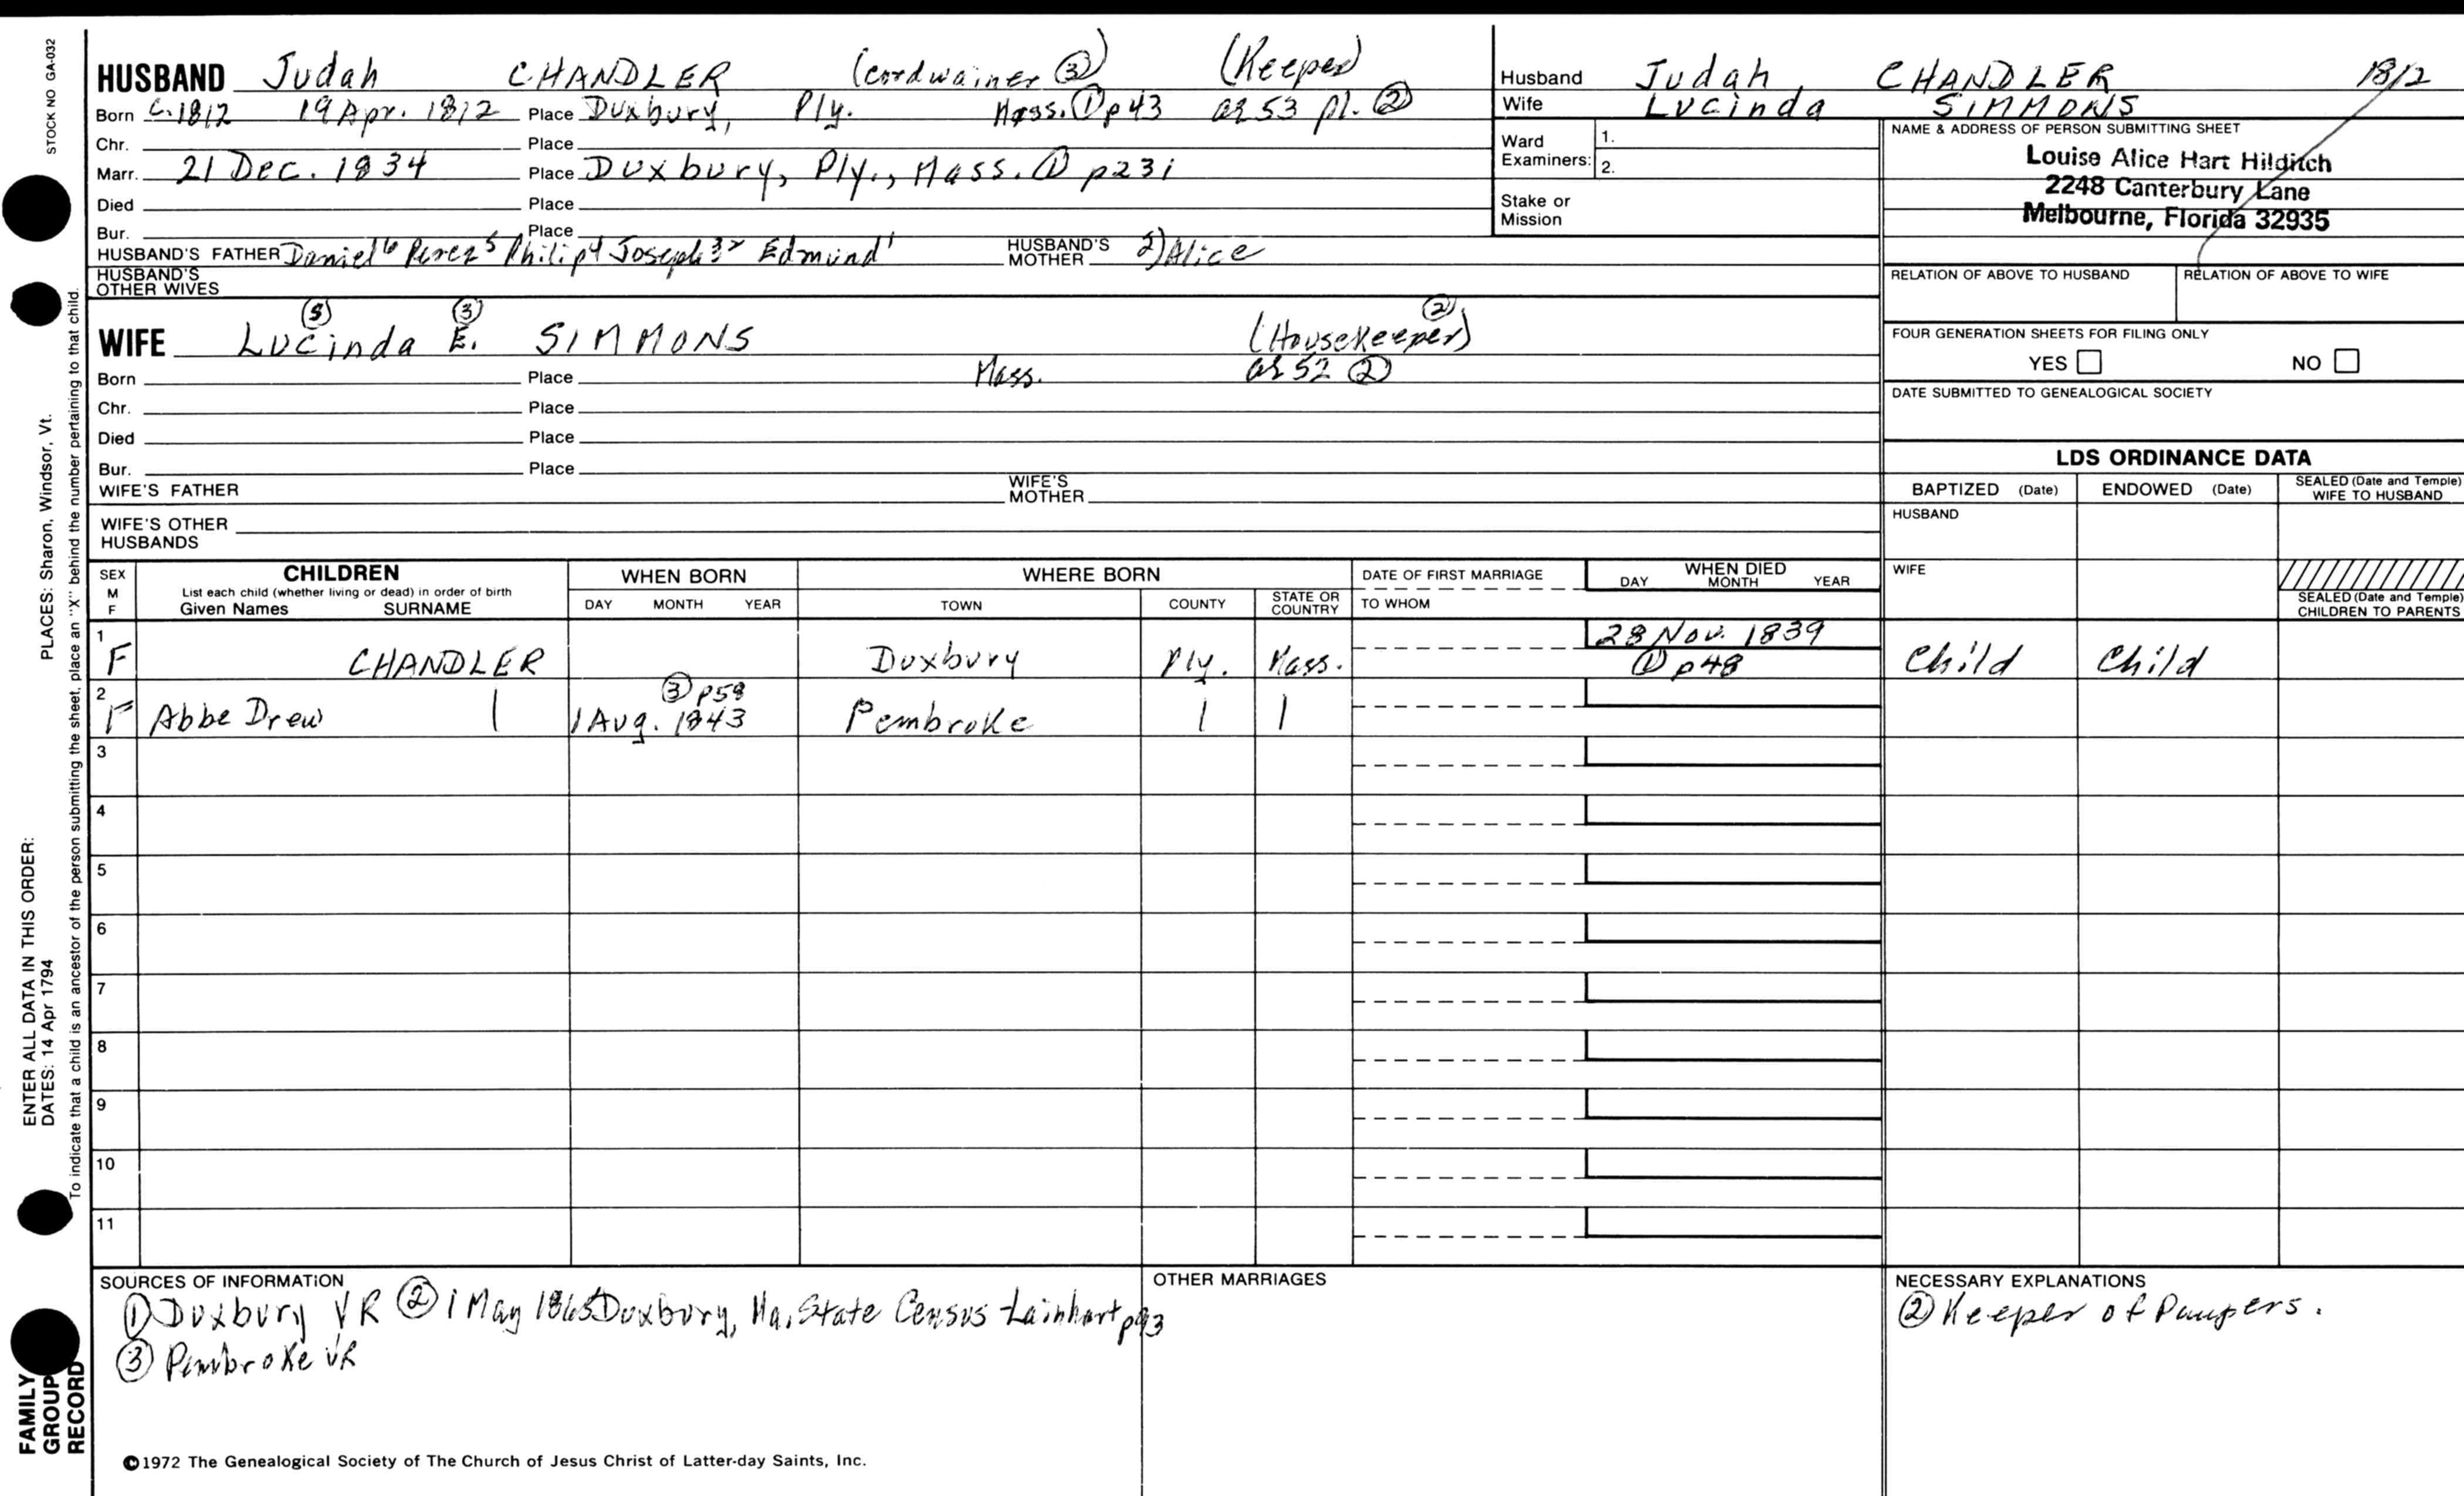 STOCK NO GA-032
HUSBAND Judah CHANDLER (cordwainer ③) (Keeper)
Born C.1812 19 Apr. 1812 Place Duxbury, Ply. Mass. ① p43 ae 53 pl. ②
Chr. Place
Marr. 21 Dec. 1834 Place Duxbury, Ply., Mass. ① p231
Died Place
Bur. Place
HUSBAND'S FATHER Daniel⁶ Perez⁵ Philip⁴ Joseph³² Edmund¹ HUSBAND'S MOTHER 2) Alice
HUSBAND'S OTHER WIVES
WIFE Lucinda ⑤ E. ③ SIMMONS (Housekeeper) ②
Born Place Mass. ae 52 ②
Chr. Place
Died Place
Bur. Place
WIFE'S FATHER WIFE'S MOTHER
WIFE'S OTHER HUSBANDS
Husband Judah CHANDLER 1812
Wife Lucinda SIMMONS
Ward Examiners: 1. 2.
Stake or Mission
NAME & ADDRESS OF PERSON SUBMITTING SHEET
Louise Alice Hart Hilditch
2248 Canterbury Lane
Melbourne, Florida 32935
RELATION OF ABOVE TO HUSBAND RELATION OF ABOVE TO WIFE
FOUR GENERATION SHEETS FOR FILING ONLY
YES NO
DATE SUBMITTED TO GENEALOGICAL SOCIETY
LDS ORDINANCE DATA
BAPTIZED (Date) ENDOWED (Date) SEALED (Date and Temple) WIFE TO HUSBAND
HUSBAND
WIFE
SEALED (Date and Temple) CHILDREN TO PARENTS
SEX M F CHILDREN List each child (whether living or dead) in order of birth Given Names SURNAME WHEN BORN DAY MONTH YEAR WHERE BORN TOWN COUNTY STATE OR COUNTRY DATE OF FIRST MARRIAGE TO WHOM WHEN DIED DAY MONTH YEAR
1 F CHANDLER Duxbury Ply. Mass. 28 Nov. 1839 ① p48 Child Child
2 F Abbe Drew | 1 Aug. 1843 ③ p58 Pembroke | |
3
4
5
6
7
8
9
10
11
SOURCES OF INFORMATION
① Duxbury VR ② 1 May 1865 Duxbury, Ma. State Census - Lainhart p93
③ Pembroke VR
OTHER MARRIAGES
NECESSARY EXPLANATIONS
② Keeper of Paupers.
©1972 The Genealogical Society of The Church of Jesus Christ of Latter-day Saints, Inc.
ENTER ALL DATA IN THIS ORDER:
DATES: 14 Apr 1794
PLACES: Sharon, Windsor, Vt.
To indicate that a child is an ancestor of the person submitting the sheet, place an "X" behind the number pertaining to that child.
FAMILY GROUP RECORD